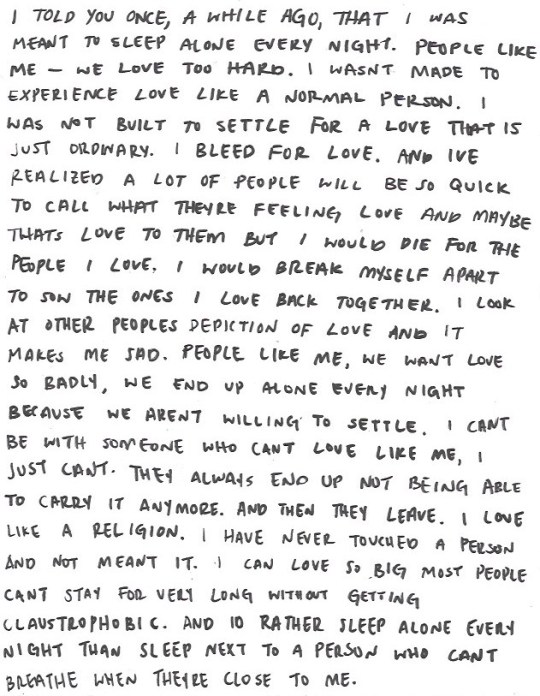 I TOLD YOU ONCE, A WHILE AGO, THAT I WAS
MEANT TO SLEEP ALONE EVERY NIGHT. PEOPLE LIKE
ME — WE LOVE TOO HARD. I WASNT MADE TO
EXPERIENCE LOVE LIKE A NORMAL PERSON. I
WAS NOT BUILT TO SETTLE FOR A LOVE THAT IS
JUST ORDINARY. I BLEED FOR LOVE. AND IVE
REALIZED A LOT OF PEOPLE WILL BE SO QUICK
TO CALL WHAT THEYRE FEELING LOVE AND MAYBE
THATS LOVE TO THEM BUT I WOULD DIE FOR THE
PEOPLE I LOVE. I WOULD BREAK MYSELF APART
TO SOW THE ONES I LOVE BACK TOGETHER. I LOOK
AT OTHER PEOPLES DEPICTION OF LOVE AND IT
MAKES ME SAD. PEOPLE LIKE ME, WE WANT LOVE
SO BADLY, WE END UP ALONE EVERY NIGHT
BECAUSE WE ARENT WILLING TO SETTLE. I CANT
BE WITH SOMEONE WHO CANT LOVE LIKE ME, I
JUST CANT. THEY ALWAYS END UP NOT BEING ABLE
TO CARRY IT ANYMORE. AND THEN THEY LEAVE. I LOVE
LIKE A RELIGION. I HAVE NEVER TOUCHED A PERSON
AND NOT MEANT IT. I CAN LOVE SO BIG MOST PEOPLE
CANT STAY FOR VERY LONG WITHOUT GETTING
CLAUSTROPHOBIC. AND ID RATHER SLEEP ALONE EVERY
NIGHT THAN SLEEP NEXT TO A PERSON WHO CANT
BREATHE WHEN THEYRE CLOSE TO ME.